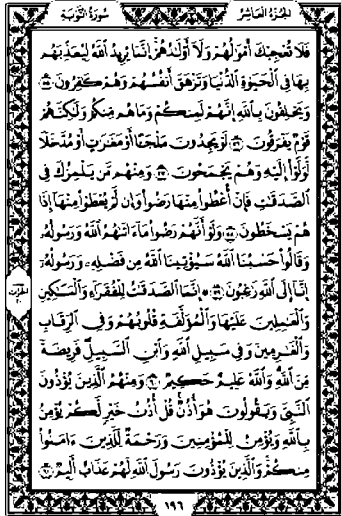 الجزء العاشر
سورة التوبة
فَلَا تُعْجِبْكَ أَمْوَٰلُهُمْ وَلَآ أَوْلَٰدُهُمْ إِنَّمَا يُرِيدُ ٱللَّهُ لِيُعَذِّبَهُم
بِهَا فِى ٱلْحَيَوٰةِ ٱلدُّنْيَا وَتَزْهَقَ أَنفُسُهُمْ وَهُمْ كَٰفِرُونَ ٥٥
وَيَحْلِفُونَ بِٱللَّهِ إِنَّهُمْ لَمِنكُمْ وَمَا هُم مِّنكُمْ وَلَٰكِنَّهُمْ
قَوْمٌ يَفْرَقُونَ ٥٦ لَوْ يَجِدُونَ مَلْجَـًٔا أَوْ مَغَٰرَٰتٍ أَوْ مُدَّخَلًا
لَّوَلَّوْا۟ إِلَيْهِ وَهُمْ يَجْمَحُونَ ٥٧ وَمِنْهُم مَّن يَلْمِزُكَ فِى
ٱلصَّدَقَٰتِ فَإِنْ أُعْطُوا۟ مِنْهَا رَضُوا۟ وَإِن لَّمْ يُعْطَوْا۟ مِنْهَآ إِذَا
هُمْ يَسْخَطُونَ ٥٨ وَلَوْ أَنَّهُمْ رَضُوا۟ مَآ ءَاتَىٰهُمُ ٱللَّهُ وَرَسُولُهُۥ
وَقَالُوا۟ حَسْبُنَا ٱللَّهُ سَيُؤْتِينَا ٱللَّهُ مِن فَضْلِهِۦ وَرَسُولُهُۥٓ
إِنَّآ إِلَى ٱللَّهِ رَٰغِبُونَ ٥٩ ۞ إِنَّمَا ٱلصَّدَقَٰتُ لِلْفُقَرَآءِ وَٱلْمَسَٰكِينِ
وَٱلْعَٰمِلِينَ عَلَيْهَا وَٱلْمُؤَلَّفَةِ قُلُوبُهُمْ وَفِى ٱلرِّقَابِ
وَٱلْغَٰرِمِينَ وَفِى سَبِيلِ ٱللَّهِ وَٱبْنِ ٱلسَّبِيلِ فَرِيضَةً
مِّنَ ٱللَّهِ وَٱللَّهُ عَلِيمٌ حَكِيمٌ ٦٠ وَمِنْهُمُ ٱلَّذِينَ يُؤْذُونَ
ٱلنَّبِىَّ وَيَقُولُونَ هُوَ أُذُنٌ قُلْ أُذُنُ خَيْرٍ لَّكُمْ يُؤْمِنُ
بِٱللَّهِ وَيُؤْمِنُ لِلْمُؤْمِنِينَ وَرَحْمَةٌ لِّلَّذِينَ ءَامَنُوا۟
مِنكُمْ وَٱلَّذِينَ يُؤْذُونَ رَسُولَ ٱللَّهِ لَهُمْ عَذَابٌ أَلِيمٌ ٦١
١٩٦